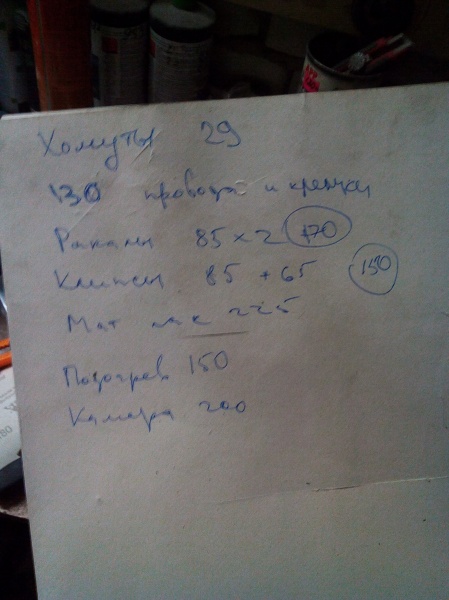 Хомуты 29
130 провода и крепежи
85 x 2 170
Клипсы 85 + 65 150
Мат 225
Подогрев 150
Камера 200